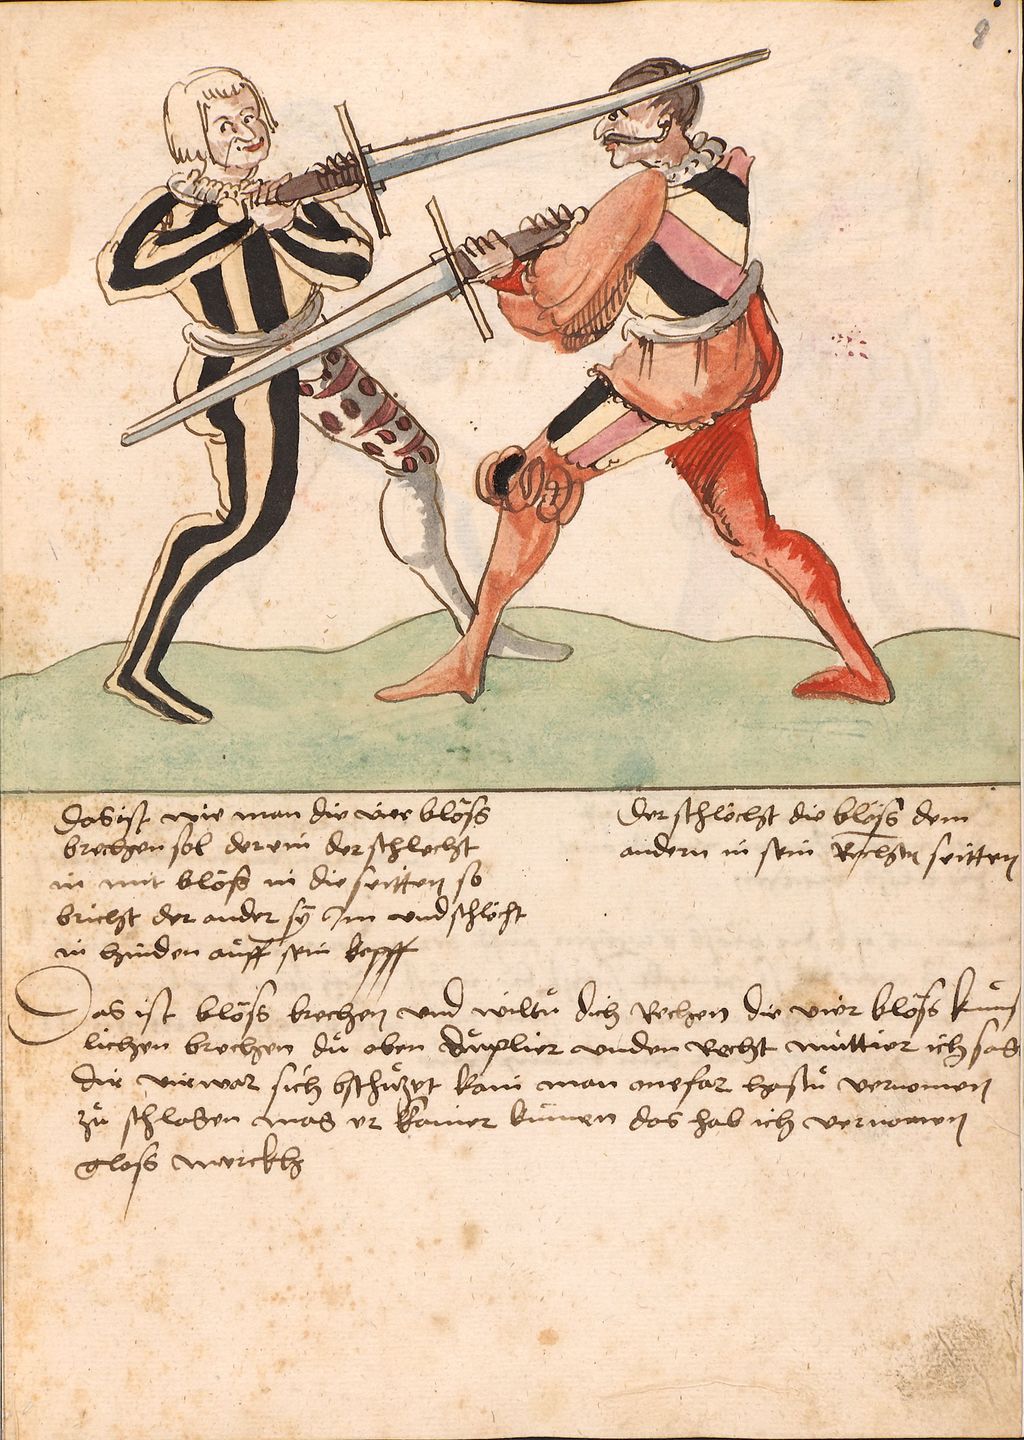 8
Das ist wie man die vier blöss
brechen sol der ein der schlecht
in mit blöss in die seitten so
bricht der ander sÿ im und schlöcht
in hinden auff sein kopff
Der schlöcht die blöss dem
andern in sein Rechsten seitten
Das ist blöss brechen und wiltu dich Rechen die vier blöss küns
lichen brechen dü oben düplier unden Recht müttier ich sag
dir vürwar sich bschützet kain man onefar hastu vernomen
zü schlagen mag er kainer kumen das hab ich vernomen
gloss merckh